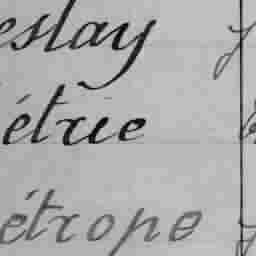 eslay
étrie
étrope